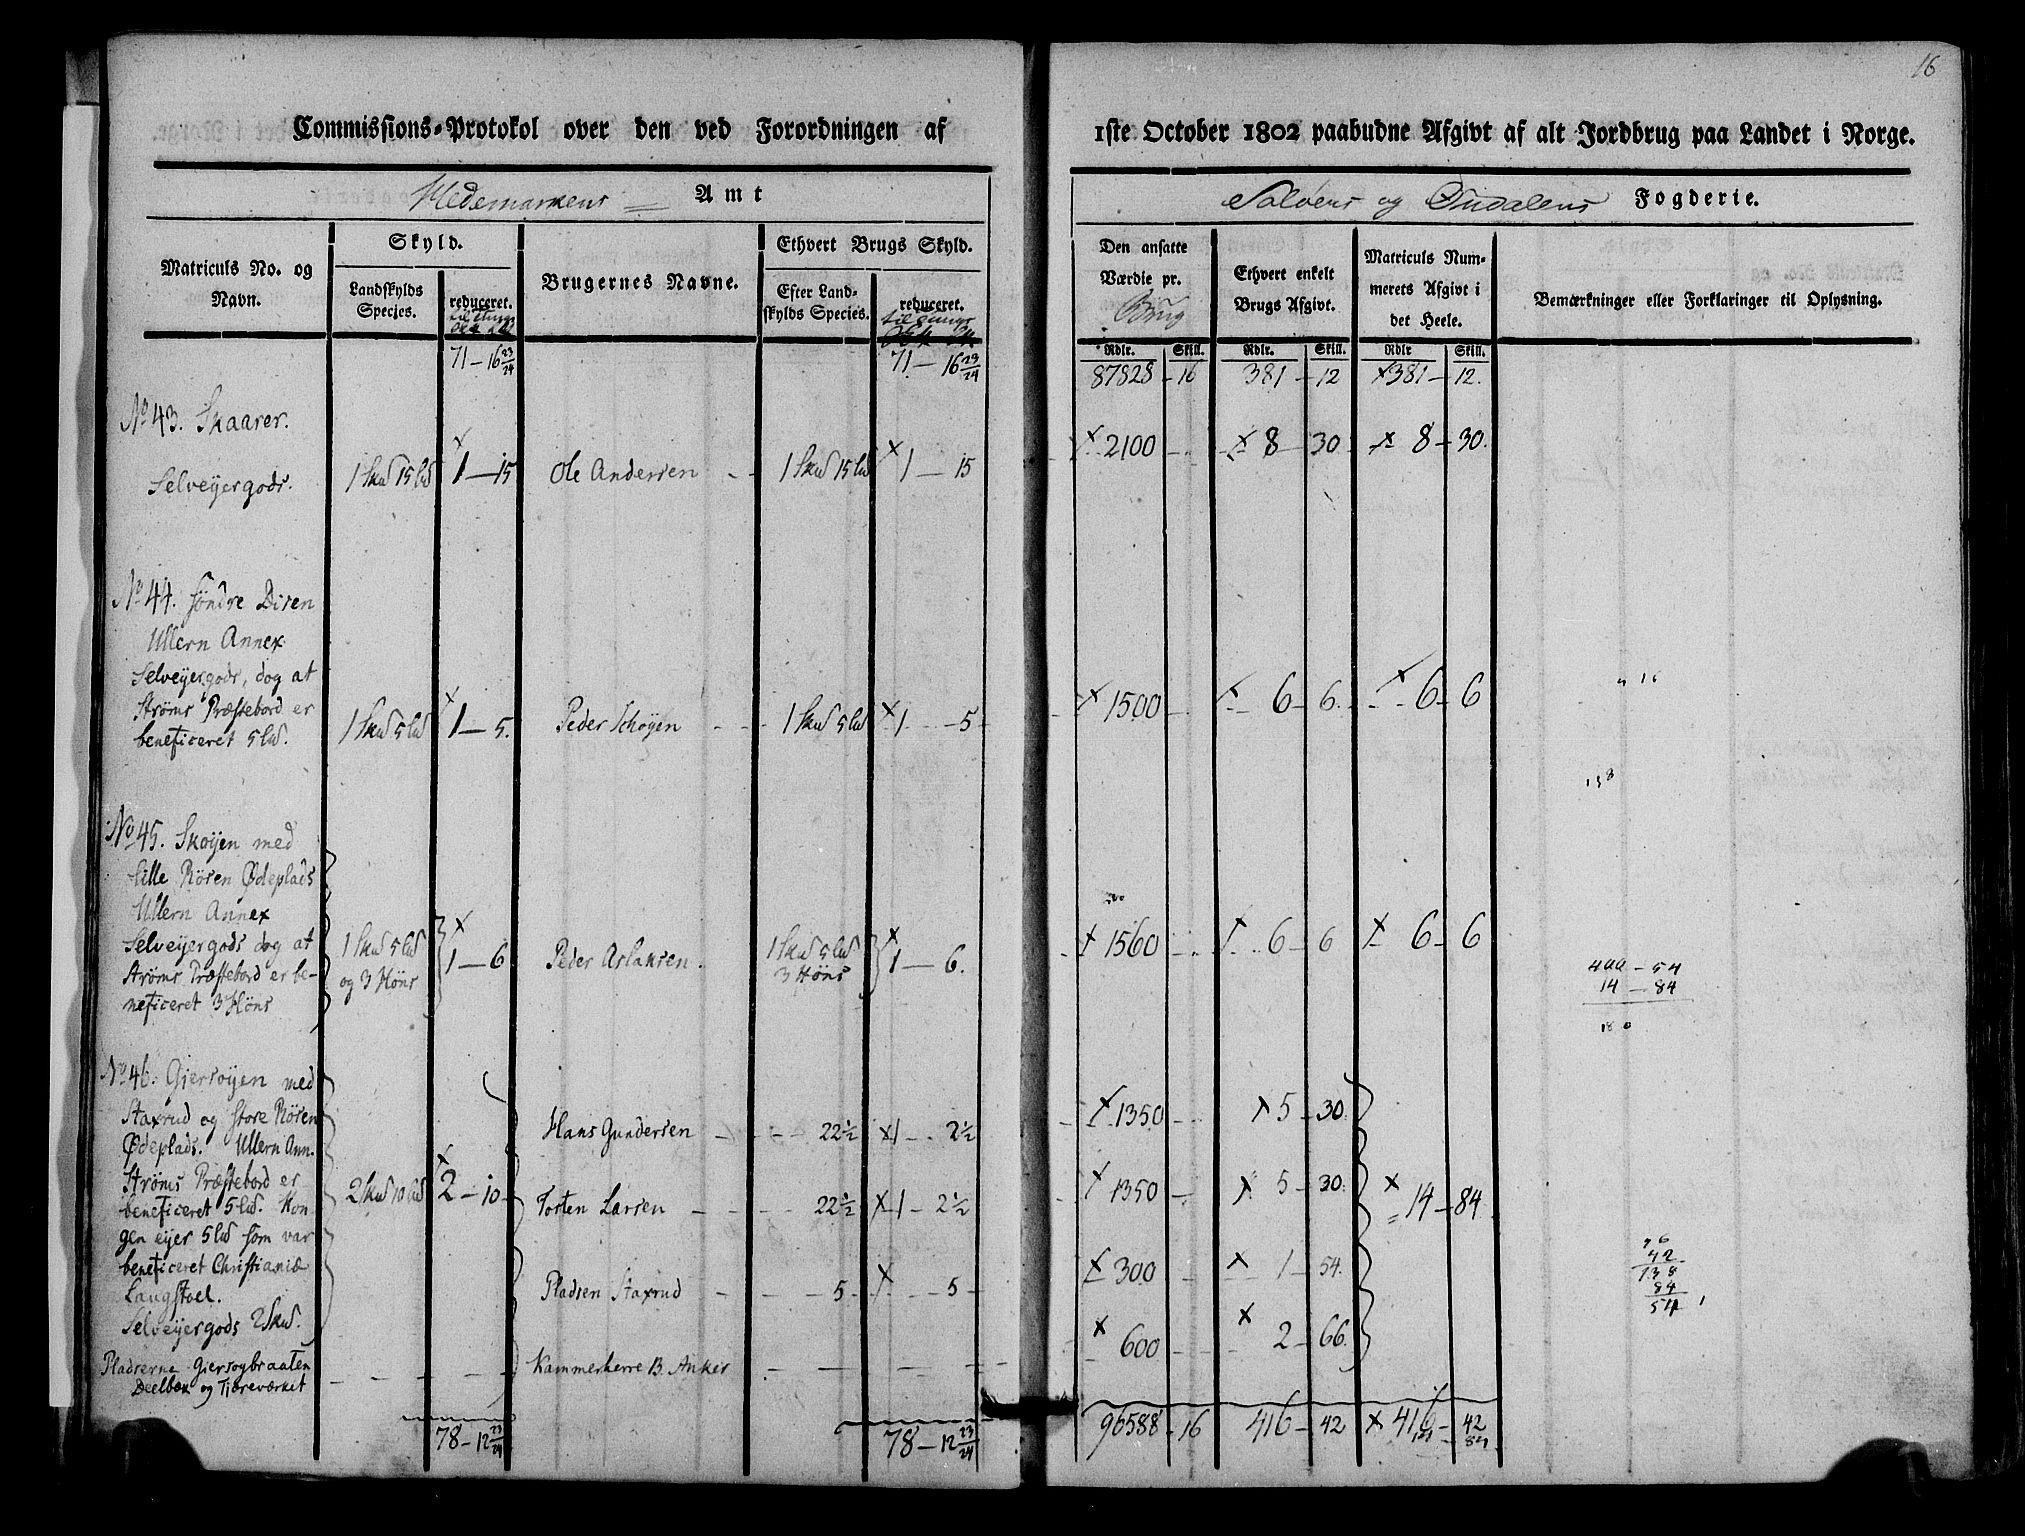 16
Commissions-Protokol over den ved Forordningen af 1ste October 1802 paabudne Afgivt af alt Jordbrug paa Landet i Norge.
Hedemarkens Amt
Soløers og Oudalens Fogderie.
Matriculs No. og Navn.
Skyld.
Landskylds Species.
reduceret.
Brugernes Navne.
Ethvert Brugs Skyld.
Efter Landskylds Species.
reduceret.
Den ansatte Værdie pr. Brug
Ethvert enkelt Brugs Afgivt.
Matriculs Nummerets Afgivt i det Heele.
Bemærkninger eller Forklaringer til Oplysning.
Rdlr. Skill. Rdlr. Skill. Rdlr Skill.
71 – 16 23/24 71 – 16 23/24 87828 – 16 381 – 12 ×381 – 12.
No 43. Skaarer.
Selveyergods. 1 Skud 15 lud 1 – 15 Ole Andersen 1 Skud 15 lud 1 – 15 2100 8 30 8 – 30.
No 44. Søndre Disen
Ullern Annex
Selveyergods, dog at
Strøms Præstebord er
beneficeret 5 lud. 1 Skud 5 lud 1 – 5. Peder Schøyen 1 Skud 5 lud 1 – 5 1500 6 – 6. 6 – 6
No 45. Skøyen med
Lille Røren Ødeplads
Ullern Annex
Selveyergods dog at
Strøms Præstebord er be-
neficeret 3 Høns 1 Skud 5 lud og 3 Høns 1 – 6 Peder Aslaksen. 1 Skud 5 lud 3 Høns 1 – 6. 1560 6 – 6 6 – 6
14 – 84
No 46. Giersøyen med
Staxrud og Store Røren
Ødeplads. Ullern Ann.
Strøms Præstebord er
beneficeret 5 lud. Kon-
gen eyer 5 lud som var
beneficeret Christianiæ
Laugstoel.
Selveyergods 2 Skud. 2 Skud 10 lud 2 – 10
Hans Gundersen 22½ 1 – 2½ 1350 5 – 30.
Torsten Larsen 22½ 1 – 2½ 1350 5 – 30. 14 – 84
Pladsen Staxrud 5 5 300 1 – 54.
Pladserne Giersøybraaten
Deelbæk og Tjæreværket Kammerherre B. Anker 600 2 – 66.
42
138
84
54
78 – 12 23/24 78 – 12 23/24 96588 – 16 416 – 42 × 416 – 42